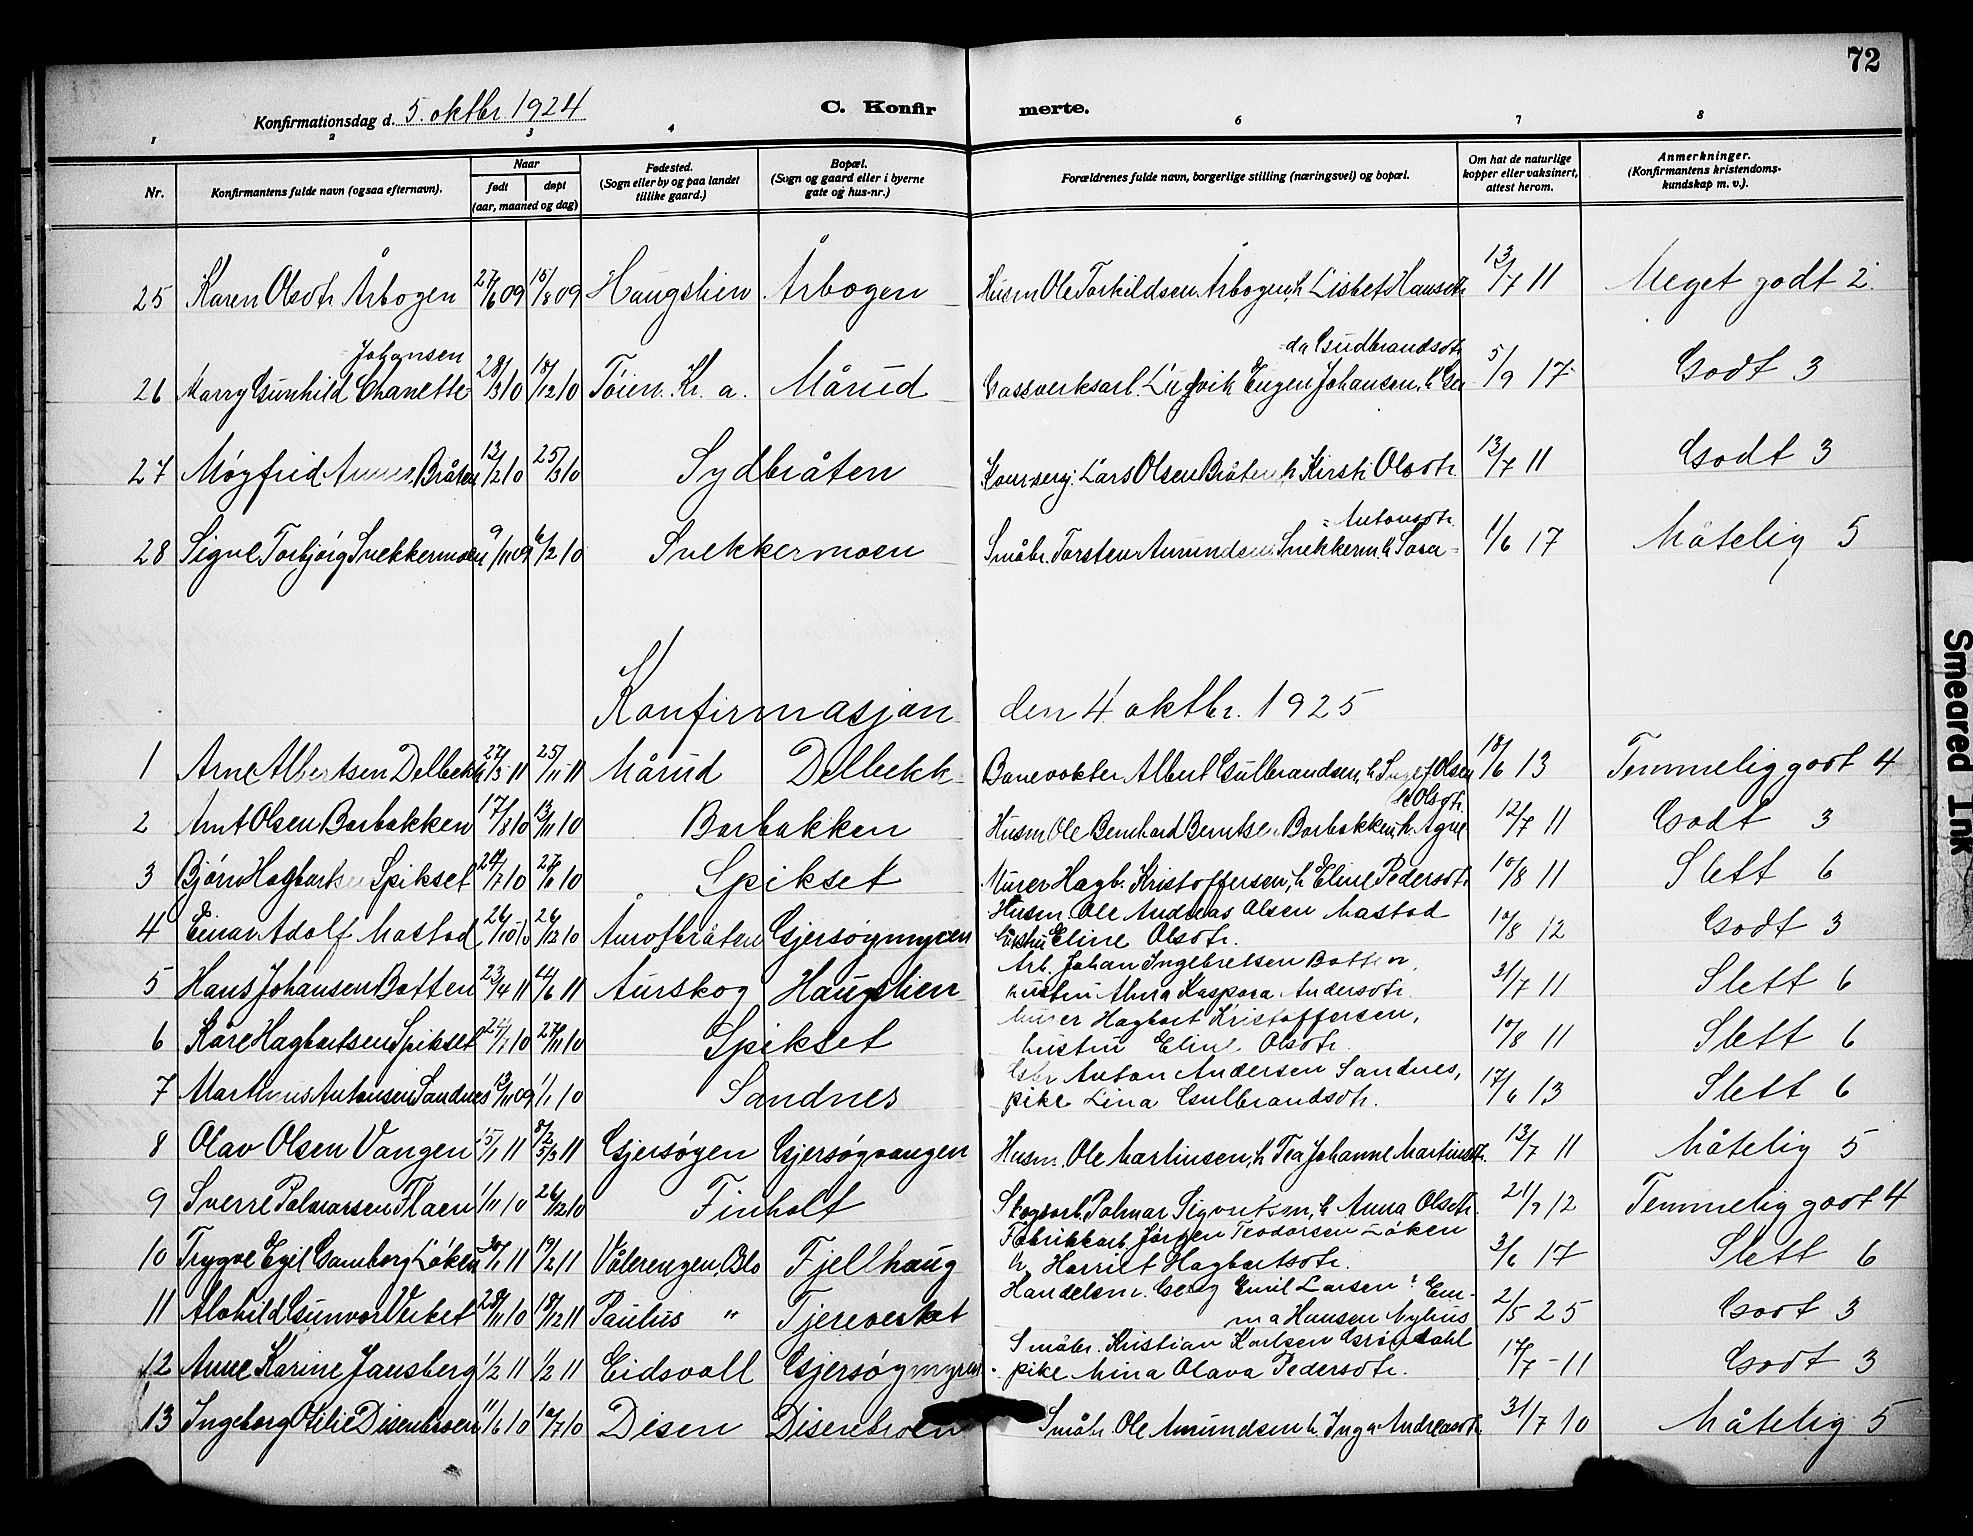 72
Konfirmationsdag d. 5. oktbr. 1924
C. Konfirmerte.
1 2 3 4 6 7 8
Nr. Konfirmantens fulde navn (ogsaa efternavn). Naar født døpt (aar, maaned og dag) Fødested. (Sogn eller by og paa landet tillike gaard.) Bopæl. (Sogn og gaard eller i byerne gate og hus-nr.) Forældrenes fulde navn, borgerlige stilling (næringsvei) og bopæl. Om hat de naturlige kopper eller vaksinert, attest herom. Anmerkninger. (Konfirmantens kristendomskundskap m. v.).
25 Karen Olsdtr Årbogen 27/6 09 15/8 09 Haugstien Årbogen Husm Ole Torkildsen Årbogen, h Lisbet Hansdtr 13/7 11 Meget godt 2
Johansen =da Gudbrandsdtr
26 Marry Gunhild Chanette 28/3 10 18/12 10 Tøien. Kr. a. Mårud Gassverksarb. Ludvik Eugen Johansen, h Ger 5/9 17 Godt 3
27 Møyfrid Bråten 13/2 10 25/3 10 Sydbråten Lars Olsen Bråten, h Kirsti Olsdtr. 13/7 11 Godt 3
= Antonsdtr.
28 Signe Torbjørg Snekkermoen 9/11 09 6/2 10 Snekkermoen Småbr. Torsten Amundsen Snekkerm. h Sosa = 1/6 17 Måtelig 5
Konfirmasjon den 4 oktbr. 1925
1 Arne Albertsen Delbekk 27/5 11 25/11 11 Mårud Delbekk Banevokter Albert Gulbrandsen, h Olsen 18/6 13 Temmelig godt 4
Olsdtr.
2 Arnt Olsen Borbakken 17/8 10 13/11 10 Borbakken Husm Ole Bernhard Berntsen Borbakken h. Agne 12/7 11 Godt 3
3 Bjørn Hagbartsen Spikset 27/11 10 Spikset Murer Hagb. Kristoffersen, h Eline Pedersdtr 10/8 11 Slett 6
4 Einar Adolf Mastad 26/10 10 26/12 10 Gjersøymyren Husm. Ole Andreas Olsen Mastad
hustru Eline Olsdtr. 10/8 12 Godt 3
5 Hans Johansen Botten 23/4 11 4/6 11 Aurskog Haugstien Arb. Johan Ingebretsen Botten,
hustru Alma Kaspara Andersdtr. 31/7 11 Slett 6
6 Kåre Hagbartsen Spikset 27/11 10 Spikset Murer Hagbart Kristoffersen,
hustru Eline Olsdtr. 10/8 11 Slett 6
7 Martinus Antonsen Sandnes 13/11 09 1/1 10 Sandnes Gbr Anton Andersen Sandnes,
pike Lina Gulbrandsdtr. 17/6 13 Slett 6
8 Olav Olsen Vangen 15/1 11 5/3 11 Gjersøyen Gjersøyvangen Husm. Ole Martinsen, h Tea Johanne Martinsdtr. 13/7 11 Måtelig 5
9 Sverre Palmarsen Flaen 1/11 10 26/12 10 Finholt Skogsarb. Palmar Sigvartsen, h Anna Olsdtr. 21/9 12 Temmelig godt 4
10 Trygve Egil Gamborg Løken 30/1 11 19/2 11 Vålerengen, Oslo Fjellhaug Fabrikkarb. Jørgen Teodorsen Løken
h. Harriet Hagbartsdtr. 3/6 17 Slett 6
11 Alvhild Gunvor Verket 28/11 10 18/12 11 Paulus " Tjereverket Handelsm. Georg Emil Larsen : Em-
ma Hansen Nyhus 2/5 25 Godt 3
12 Anne Karine Jansberg 1/2 11 1/2 11 Eidsvoll Gjersøymyren Småbr. Kristian Karlsen Grøndahl
pike Mina Olava Pedersdtr. 17/7 - 11 Godt 3
13 Ingeborg Otilie Disenbroen 11/6 10 10/7 10 Disen Disenbroen Småbr Ole Amundsen h. Inga Andreasdtr. 31/7 10 Måtelig 5
Smeared Ink